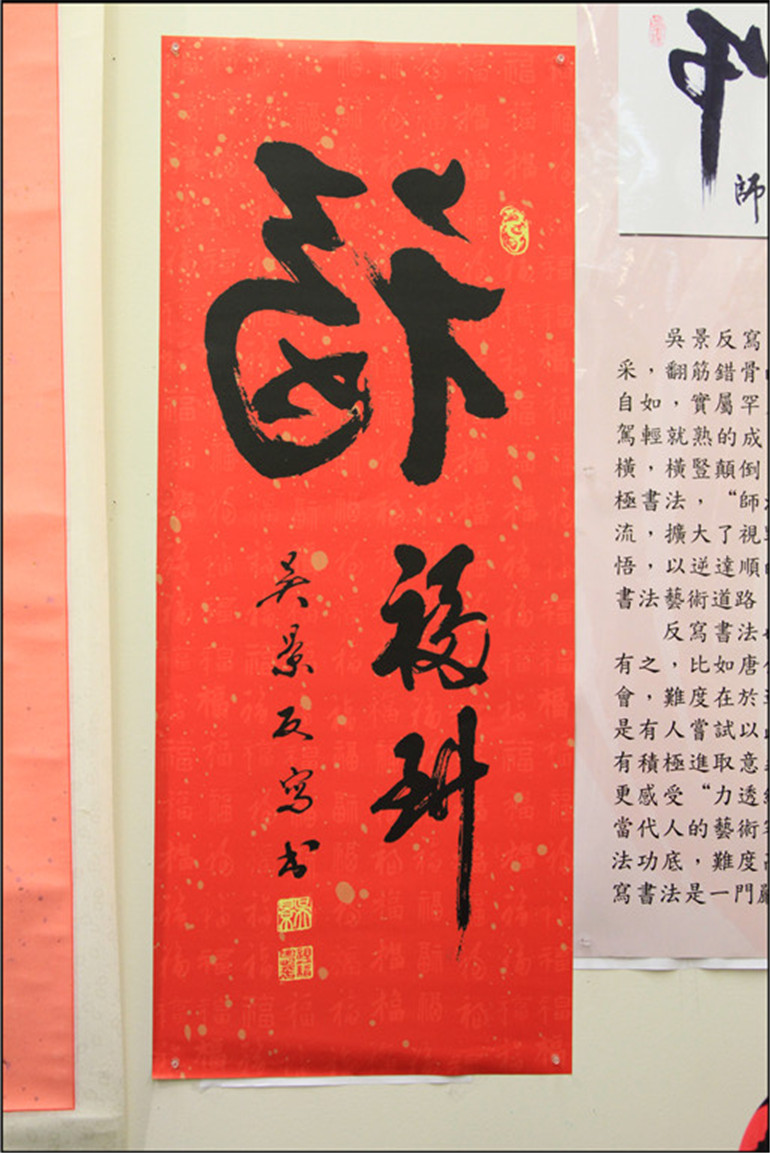 福
福到
吴景反寫书
師
吳景反寫
采，翻筋錯骨
自如，實屬罕
駕輕就熟的成
橫，橫豎顛倒
極書法，“師
流，擴大了視
悟，以逆達順
書法藝術道路
反寫書法
有之，比如唐
會，難度在於
是有人嘗試以
有積極進取意
更感受“力透
當代人的藝術
法功底，難度
寫書法是一門